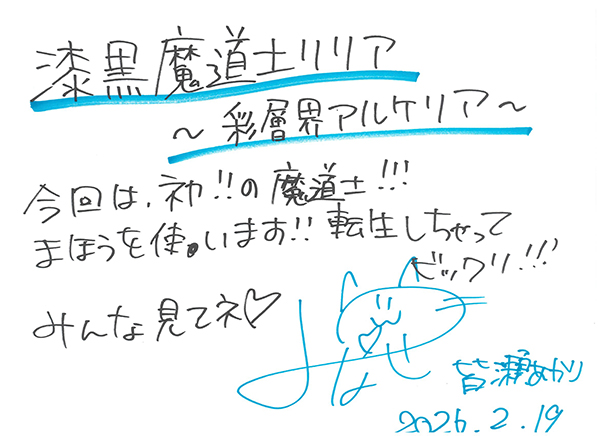 漆黒魔道士リリア
～彩層界アルケリア～
今回は、ネカ!!の魔道士!!!
まほうを使います!! 転生しちゃって
ビックリ!!!
みんな見てネ♡
みなせ
皆瀬あかり
2026.2.19